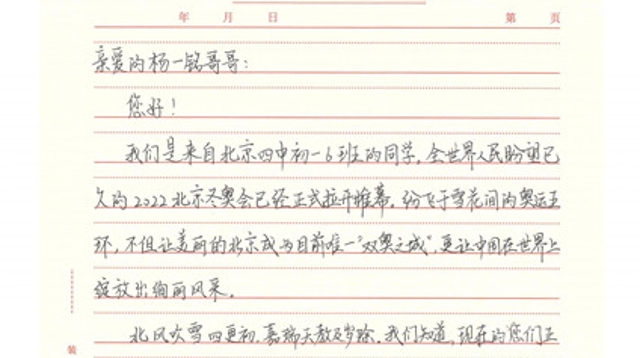 年 月 日 第 页
亲爱的杨一铭哥哥：
您好！
我们是来自北京四中初一6班的同学，全世界人民盼望已
久的2022北京冬奥会已经正式拉开帷幕，纷飞于雪花间的奥运五
环，不但让美丽的北京成为目前唯一“双奥之城”，更让中国在世界上
绽放出绚丽风采。
北风吹雪四更初，嘉瑞天教及岁除。我们知道，现在的您们正
装